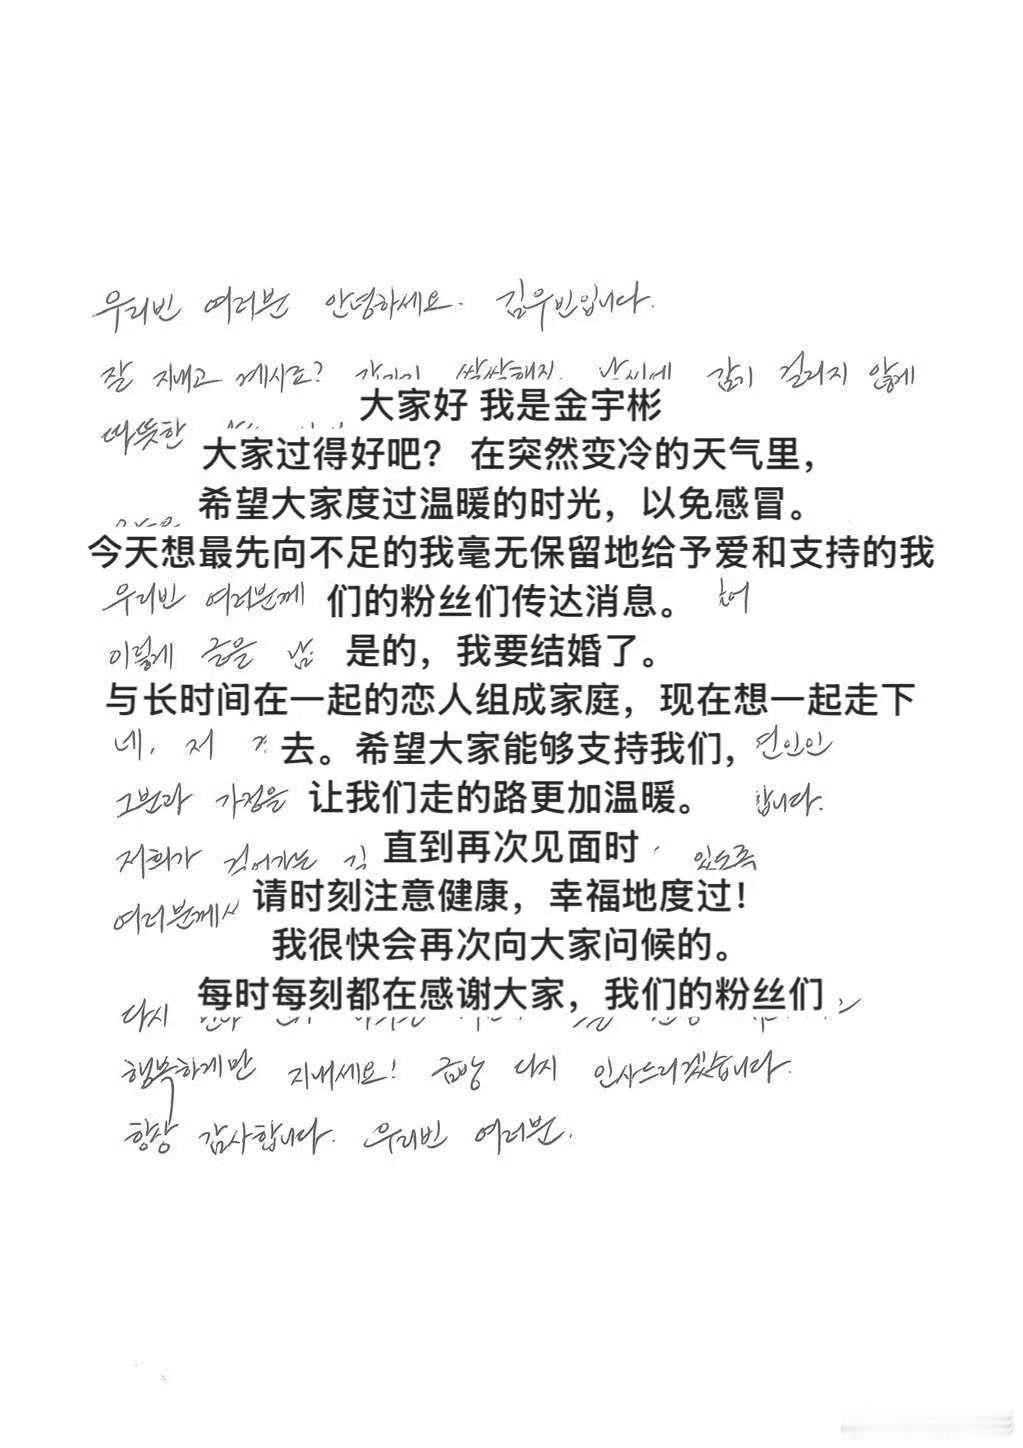 우리빈 여러분 안녕하세요. 김우빈입니다.
잘 지내고 계시죠? 갑자기 쌀쌀해진 날씨에 감기 걸리지 않게
大家好 我是金宇彬
따뜻한
大家过得好吧？ 在突然变冷的天气里，
希望大家度过温暖的时光，以免感冒。
今天想最先向不足的我毫无保留地给予爱和支持的我
우리빈 여러분께 们的粉丝们传达消息。
이렇게 글을 是的，我要结婚了。
与长时间在一起的恋人组成家庭，现在想一起走下
네, 저 去。希望大家能够支持我们， 연인인
그분과 가정을 让我们走的路更加温暖。 합니다.
저희가 걸어가는 直到再次见面时 있도록
여러분께서 请时刻注意健康，幸福地度过！
我很快会再次向大家问候的。
다시 每时每刻都在感谢大家，我们的粉丝们
행복하게만 지내세요! 금방 다시 인사드리겠습니다.
항상 감사합니다. 우리빈 여러분.